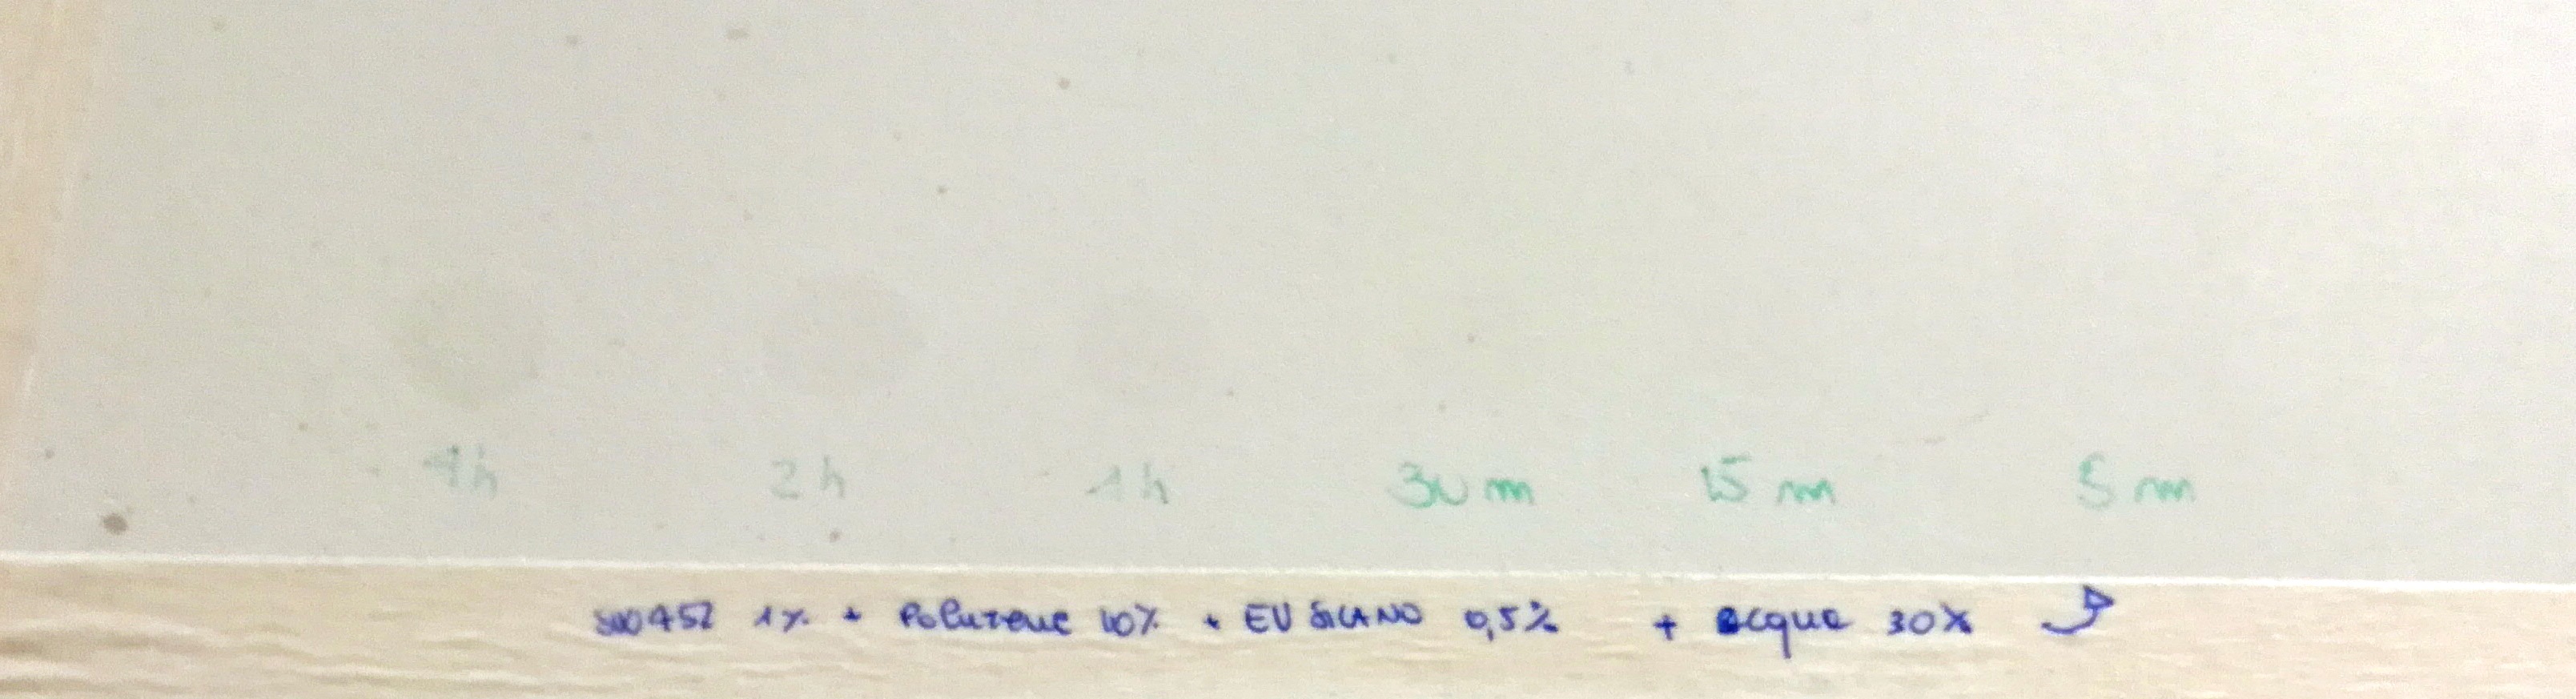 4h 2h 1h 30 m 15 m 5 m
1% + Poliuretene 10% + EV SILANO 0,5% + acqua 30%